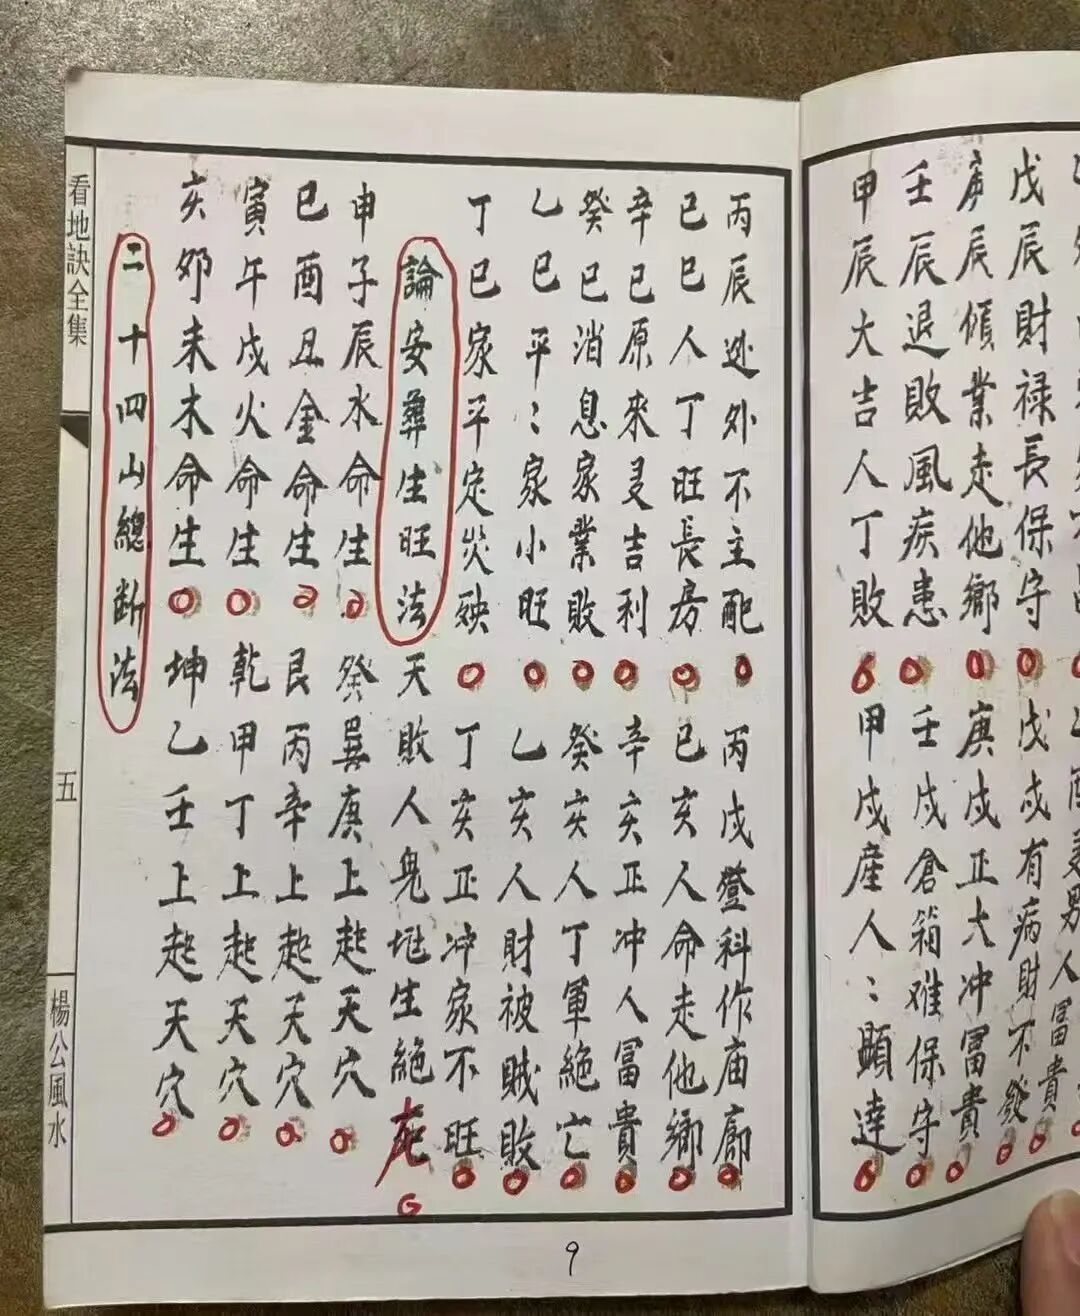 戊辰財禄長保守 戊戌有病財不發
庚辰傾業走他鄉 庚戌正大冲冨貴
壬辰退敗風疾患 壬戌倉箱难保守
甲辰大吉人丁敗 甲戌産人〻顕達
丙辰逊外不主配 丙戌登科作庙廊
己巳人丁旺長房 己亥人命走他鄉
辛巳原來是吉利 辛亥正冲人冨貴
癸巳消息家業敗 癸亥人丁軍絶亡
乙巳平〻家小旺 乙亥人財被賊敗
丁巳家平定災殃 丁亥正冲家不旺
論安葬生旺法 天敗人鬼地生絶死
申子辰水命生 癸巽庚上起天穴
巳酉丑金命生 艮丙辛上起天穴
寅午戌火命生 乾甲丁上起天穴
亥卯未木命生 坤乙壬上起天穴
二十四山總断法
看地訣全集
五
楊公風水
9